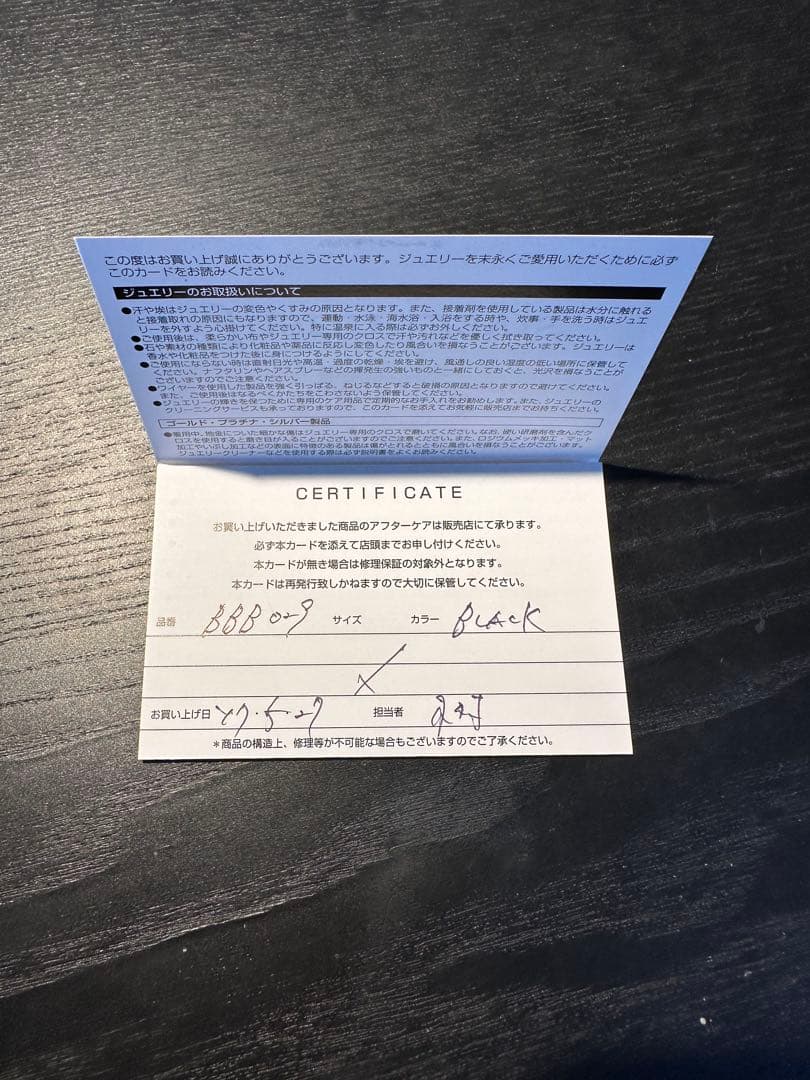 この度はお買い上げ誠にありがとうございます。ジュエリーを末永くご愛用いただくために必ず
このカードをお読みください。
ジュエリーのお取扱いについて
●汗や埃はジュエリーの変色やくすみの原因となります。また、接着剤を使用している製品は水分に触れる
と接着取れの原因にもなりますので、運動・水泳・海水浴・入浴をする時や、炊事・手を洗う時はジュエ
リーを外すよう心掛けてください。特に温泉に入る際は必ずお外しください。
●ご使用後は、柔らかい布やジュエリー専用のクロスで汗や汚れなどを優しく拭き取ってください。
●石や素材の種類により化粧品や薬品に反応し変色したり風合いを損なうことがございます。ジュエリーは
香水や化粧品をつけた後に身につけるようにしてください。
●ご使用にならない時は直射日光や高温・過度の乾燥・埃を避け、風通しの良い湿度の低い場所に保管して
ください。ナフタリンやヘアスプレーなどの揮発生の強いものと一緒にしておくと、光沢を損なうことが
ございますのでご注意ください。
●ワイヤーを使用した製品を強く引っぱる、ねじるなどすると破損の原因となりますので避けてください。
また、ご使用後はなるべくかたちをこわさないよう保管してください。
●ジュエリーの輝きを保つために専用のケア用品で定期的なお手入れをお勧めします。また、ジュエリーの
クリーニングサービスも承っておりますので、このカードを添えてお気軽に販売店までお持ちください。
ゴールド・プラチナ・シルバー製品
●着用中、地金についた細かな傷はジュエリー専用のクロスで磨いてください。なお、硬い研磨剤を含んだク
ロスを使用すると磨き目が入ることがございますのでご注意ください。また、ロジウムメッキ加工・マット
加工やいぶし加工などの表面に特徴のある製品は傷がとれるとともに風合いを損なうことがございます。
ジュエリークリーナーなどを使用する際は必ず説明書をよくお読みください。
CERTIFICATE
お買い上げいただきました商品のアフターケアは販売店にて承ります。
必ず本カードを添えて店頭までお申し付けください。
本カードが無き場合は修理保証の対象外となります。
本カードは再発行致しかねますので大切に保管してください。
品番 BBB029 サイズ カラー BLACK
お買い上げ日 Y7.5.27 担当者
＊商品の構造上、修理等が不可能な場合もございますのでご了承ください。